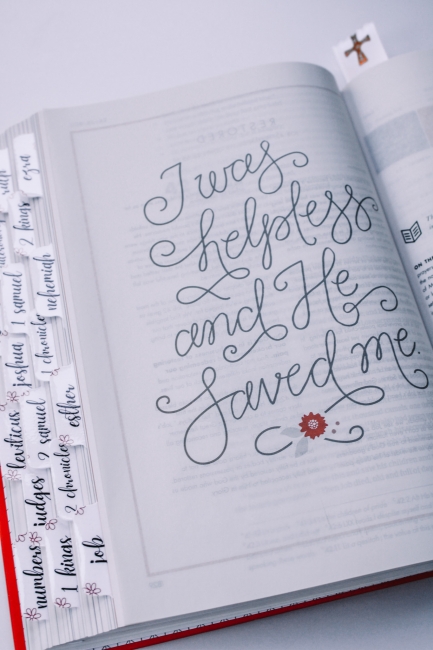 I was
helpless
and He
saved me.
ezra
2 kings
nehemiah
1 samuel
1 chronicles
joshua
esther
2 samuel
leviticus
2 chronicles
judges
job
1 kings
numbers
ON THE